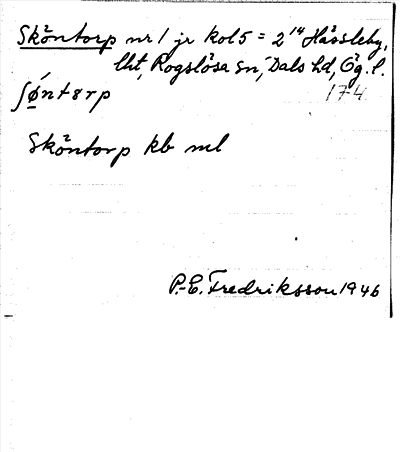 Sköntorp nr 1 jr kol 5 = 2¹⁴ Hässleby,
lht, Rogslösa sn, Dals hd, Ög. l.
ʃǿ̱ntɵrp 174
Sköntorp kb ml
P.-E. Fredriksson 1946